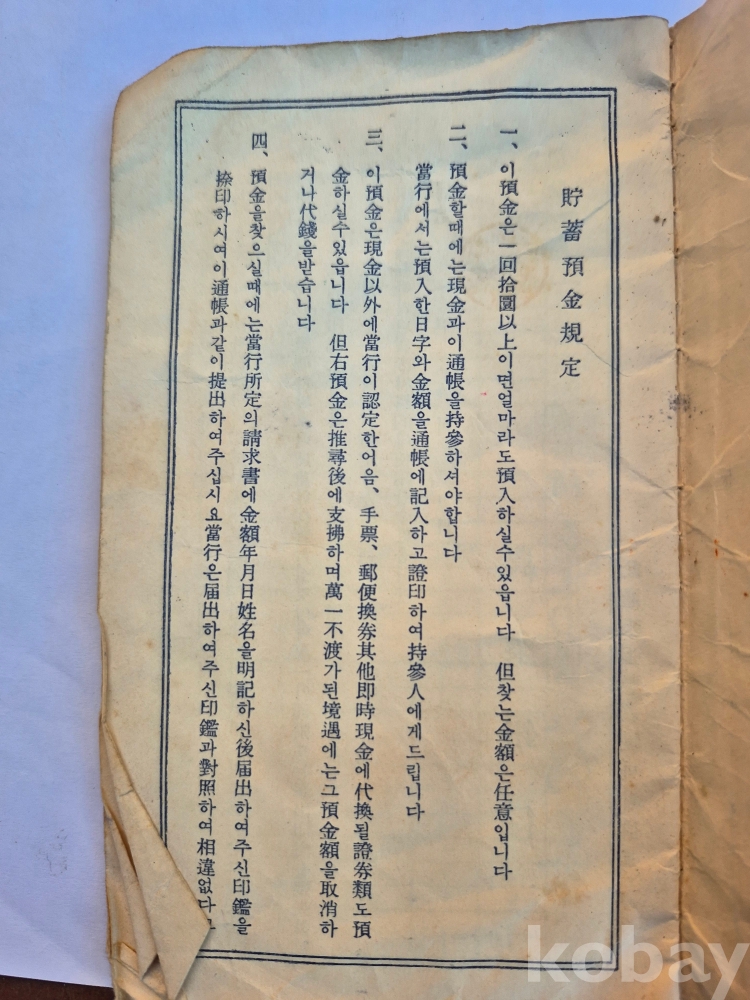 貯蓄預金規定
一、이預金은一回拾圜以上이면얼마라도預入하실수있읍니다 但찾는金額은任意입니다
二、預金할때에는現金과이通帳을持參하셔야합니다
當行에서는預入한日字와金額을通帳에記入하고證印하여持參人에게드립니다
三、이預金은現金以外에當行이認定한어음、手票、郵便換券其他即時現金에代換될證券類도預
金하실수있읍니다 但右預金은推尋後에支拂하며萬一不渡가된境遇에는그預金額을取消하
거나代錢을받습니다
四、預金을찾으실때에는當行所定의請求書에金額年月日姓名을明記하신後届出하여주신印鑑을
捺印하시여이通帳과같이提出하여주십시요當行은届出하여주신印鑑과對照하여相違없다
kobay